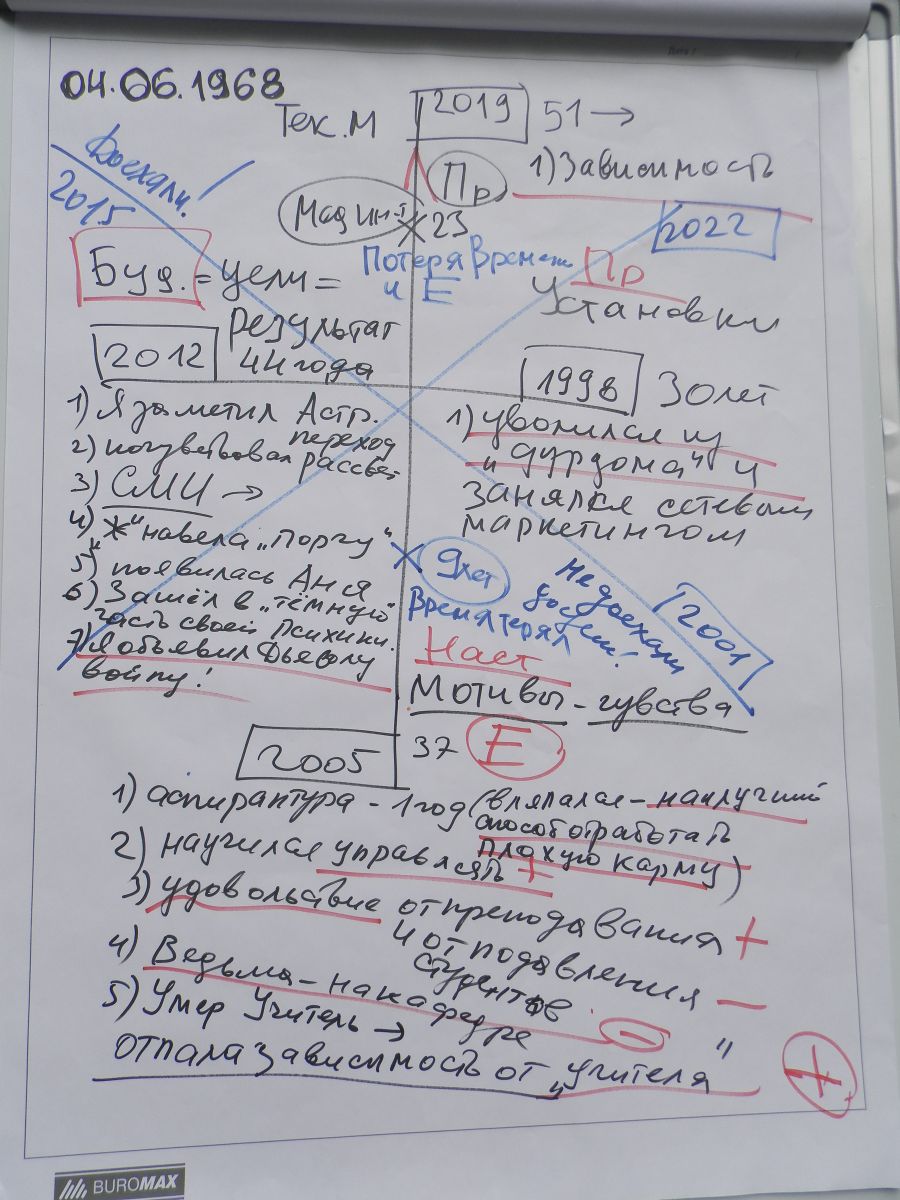 04.06.1968
Тек. М 2019 51 →
1) Зависимость
Доехали!
2015
Пр
× 23
2022
Потеря Времени
и Е
Пр
Установки
Буд. = цели =
результат
44 года
2012
1) Я заметил Астр.
переход
2) почувствовал рассвет
3) СМИ →
4) "Ж" навела „порчу"
5) появилась Аня
6) Зашёл в „тёмную"
часть своей Психики.
7) Я объявил Дьяволу
войну!
1998 30 лет
1) уволился из
„дурдома" и
занялся сетевым
маркетингом
× 9 лет
Время терял
Не доехали
2001
Наст
Мотивы - чувства
2005 37 Е
1) аспирантура - 1 год (вляпался - наилучший
способ отработать
плохую карму)
2) научился управлять +
3) удовольствие от преподавания +
и от подавления —
студентов
4) Ведьма - на кафедре —
5) Умер Учитель →
отпала зависимость от „Учителя" +
BUROMAX